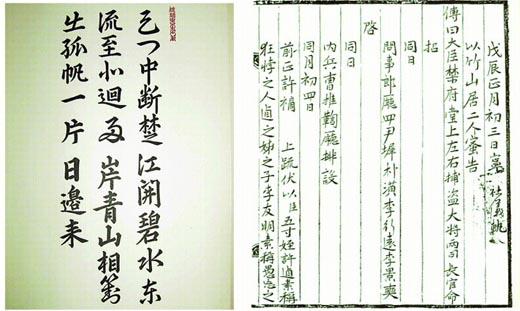 天门中断楚江開碧水东
流至此迴两岸青山相對
出孤帆一片日邊来
戊辰正月初三日
以竹山居二人
告
傳曰大臣禁府堂上左右捕盗大將兩司長官命
招
同日
問事郎廳四尹墀朴潢李行遠李景奭
啓
同日
内兵曹推鞫廳排設
同月初四日
前正許 上疏伏以臣五寸姪許逌素稱
狂悖之人逌之姊之子李友明素稱愚忠之